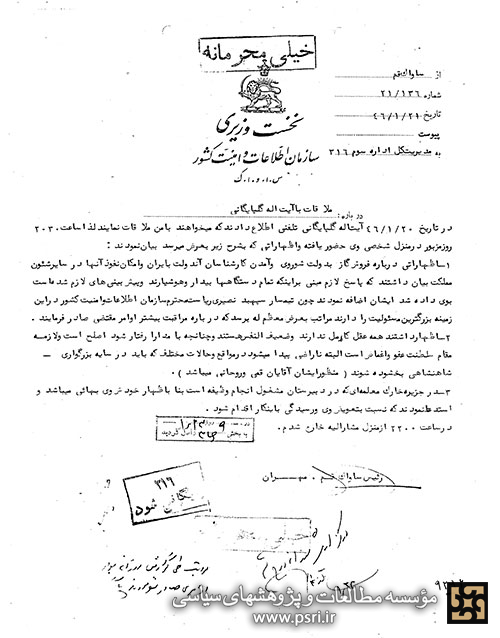 خیلی محرمانه
از ساواک قم
شماره ۲۱/۱۳۶
تاریخ ۴۶/۱/۲۱
پیوست
به مدیریت کل اداره سوم ۳۱۶
نخست وزیری
سازمان اطلاعات و امنیت کشور
س.ا.و.ا.ک
درباره: ملاقات با آیت اله گلپایگانی
در تاریخ ۴۶/۱/۲۰ آیت اله گلپایگانی تلفنی اطلاع دادند که میخواهند با من ملاقات نمایند لذا ساعت ۲۰۳۰
روز مزبور در منزل شخصی وی حضور یافته و اظهاراتی که بشرح زیر بعرض میرسد بیان نمودند :
۱ـ اظهاراتی درباره فروش گاز بدولت شوروی و آمدن کارشناسان آندولت بایران و امکان نفوذ آنها در سایر شئون
مملکت بیان داشتند که پاسخ لازم مبنی براینکه تمام دستگاهها بیدار و هوشیارند و پیش بینی های لازم شده است
بوی داده شد ایشان اضافه نمودند چون تیمسار سپهبد نصیری ریاست محترم سازمان اطلاعات و امنیت کشور در این
زمینه بزرگترین مسئولیت را دارند مراتب بعرض معظم له برسد که درباره مراقبت بیشتر اوامر مقتضی صادر فرمایند .
۲ـ اظهار داشتند همه عقل کامل ندارند وضعیف النفس هستند و چنانچه با مدارا رفتار شود اصلح است ولازمه
مقام سلطنت عفو و اغماض است البته ناراضی پیدا میشود در مواقع و حالات مختلف که باید در سایه بزرگواری
شاهنشاهی بخشوده شوند ( منظور ایشان آقایان قمی و روحانی میباشد ) .
۳ـ در جزیره خارک معلمه‌ای که در دبیرستان مشغول انجام وظیفه است بنا باظهار خودش وی بهائی میباشد و
استدعا نمودند که نسبت بتعویض وی و رسیدگی باینکار اقدام شود .
در ساعت ۲۲۰۰ از منزل مشارالیه خارج شدم .
به بخش
گردید
رئیس ساواک قم . مهران
۳۱۶
بایگانی شود
خیلی محرمانه
مؤسسه مطالعات و پژوهشهای سیاسی
www.psri.ir